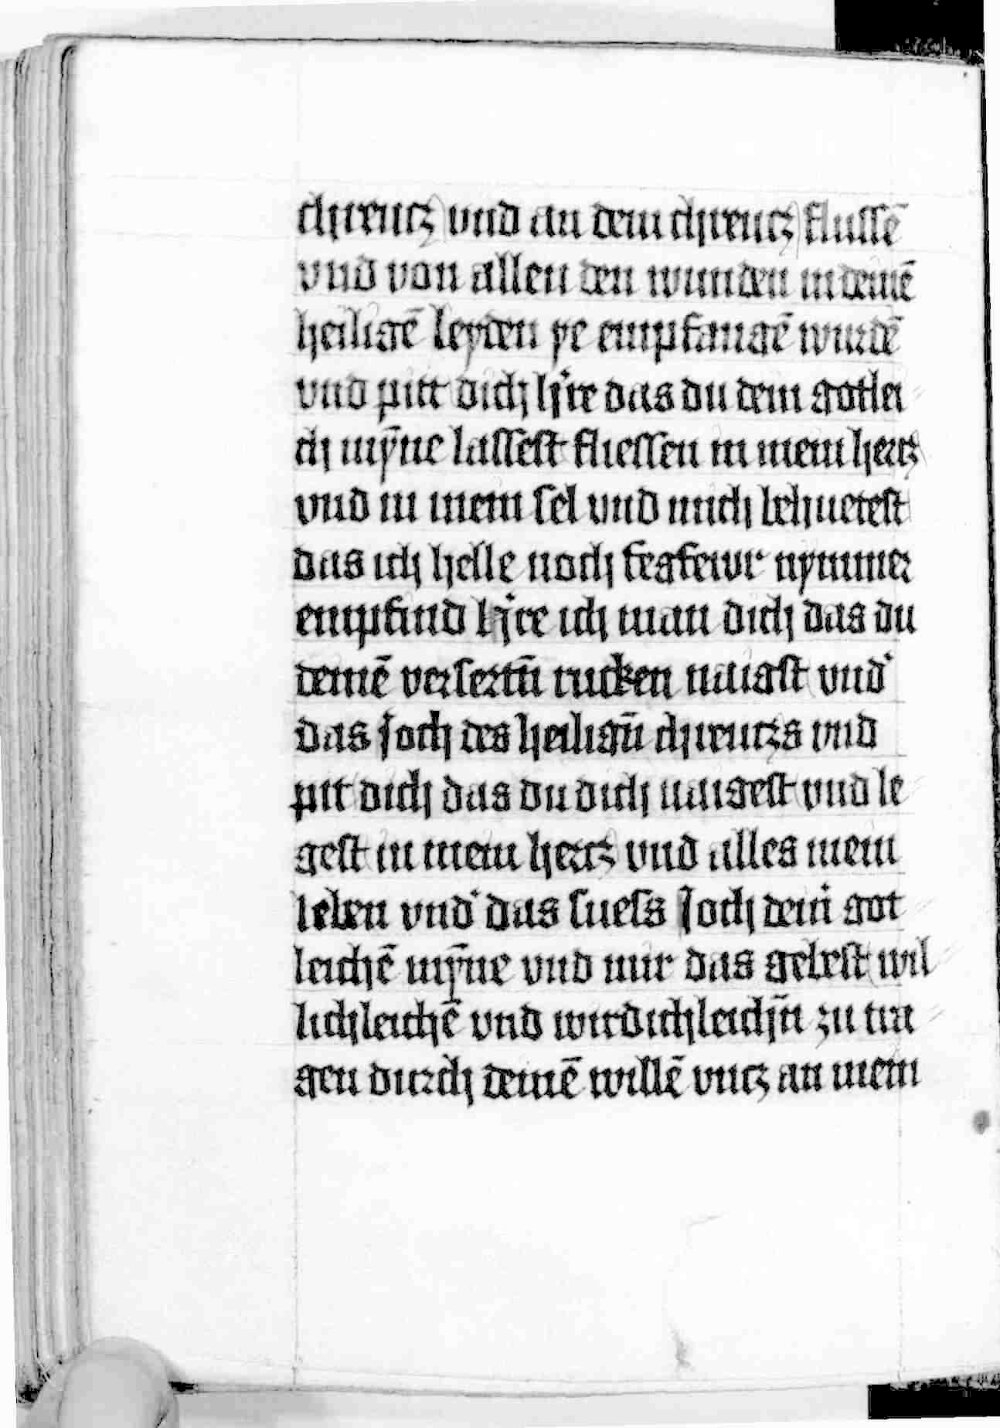 chreucz vnd an dem chreucz flussē
vnd von allen den wunden in deinē
heiligē leyden ye empfangē wurdē
vnd pitt dich hr̄e das du dein gotlei
ch mȳne lassest fliessen in mein hercz
vnd in mein sel vnd mich behuetest
das ich helle noch fegfewr nymmer
empfind hr̄e ich man dich das du
deinē versertn̄ rucken naigst vnd'
das Joch des heilign̄ chreuczs vnd
pit dich das du dich naigest vnd le
gest in mein hercz vnd alles mein
leben vnd' das suess Joch dein̄ got
leichē mȳne vnd mir das gebest wil
lichleichē vnd wirdichleichn̄ zu tra
gen durch deinē willē vncz an mein